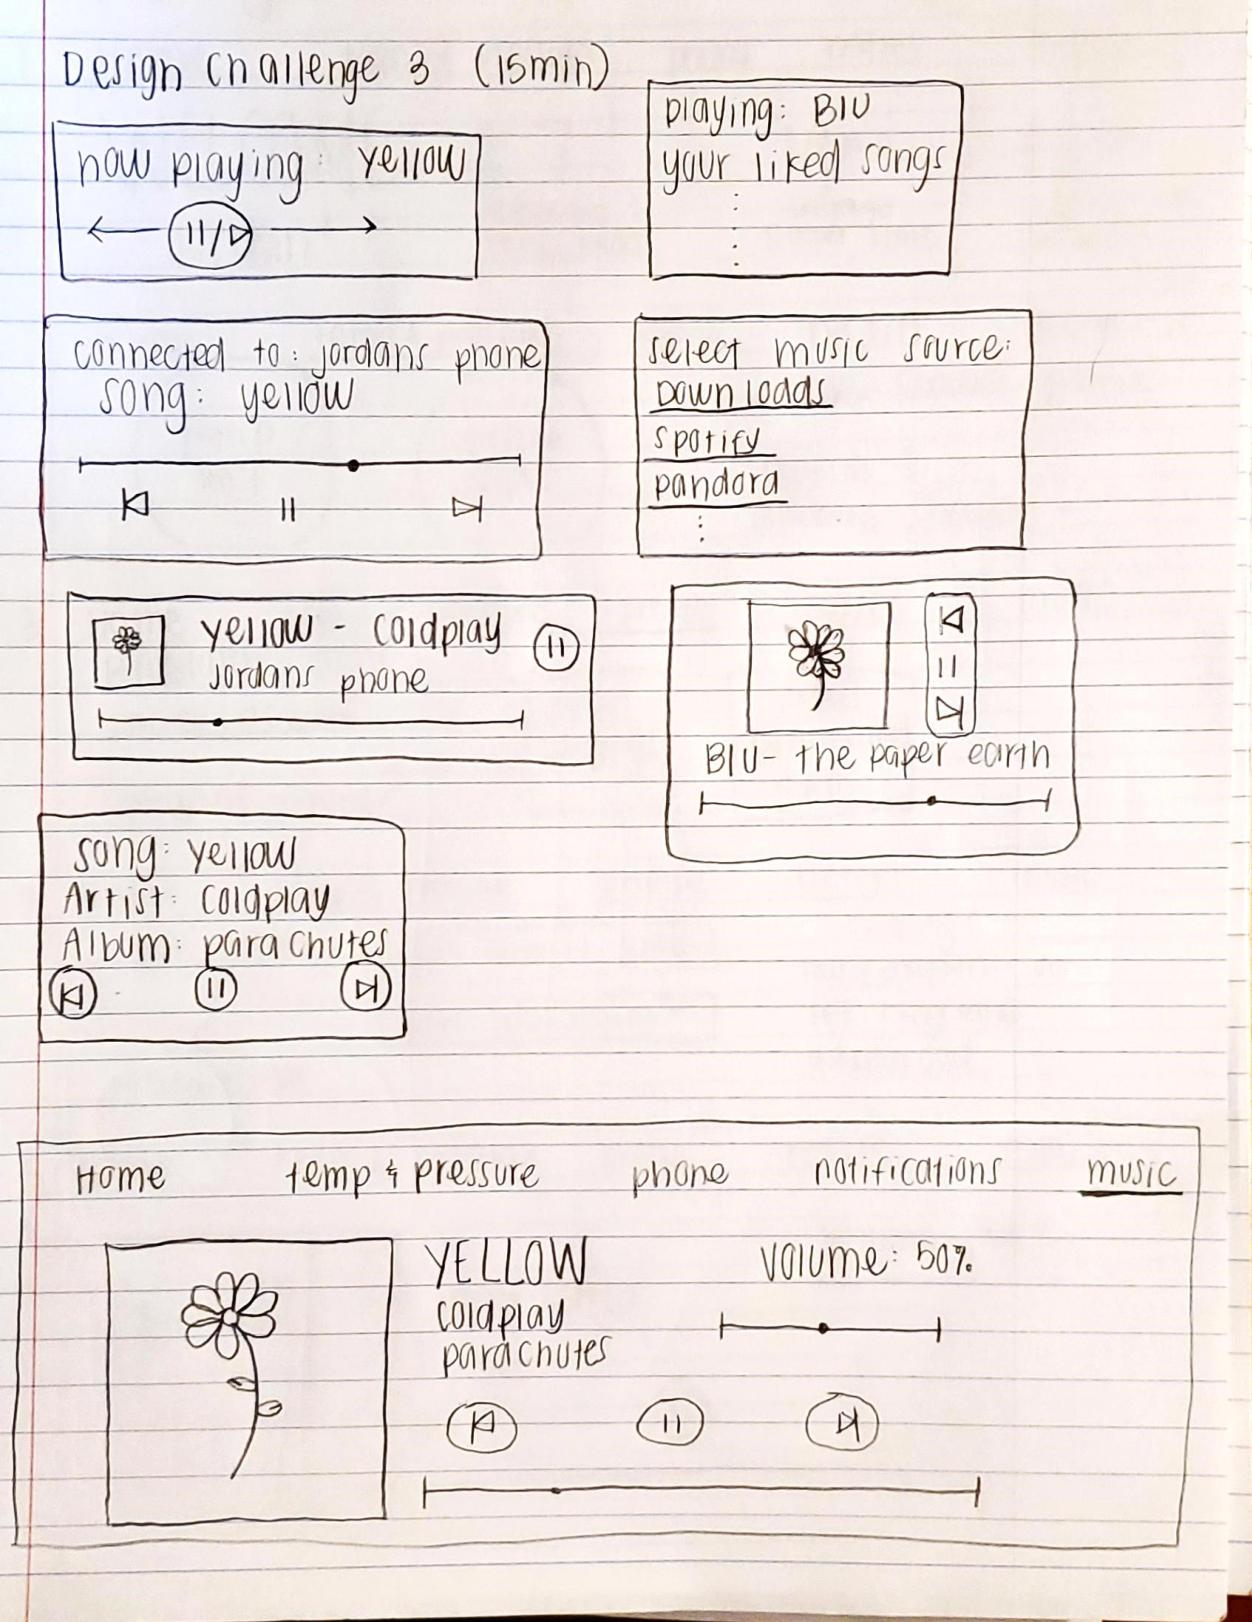 Design challenge 3 (15min)
now playing: yellow
playing: BIU
your liked songs
connected to: jordans phone
song: yellow
select music source:
Downloads
spotify
pandora
yellow - coldplay
jordans phone
BIU- the paper earth
song: yellow
Artist: coldplay
Album: parachutes
Home temp & pressure phone notifications music
YELLOW
coldplay
parachutes
volume: 50%